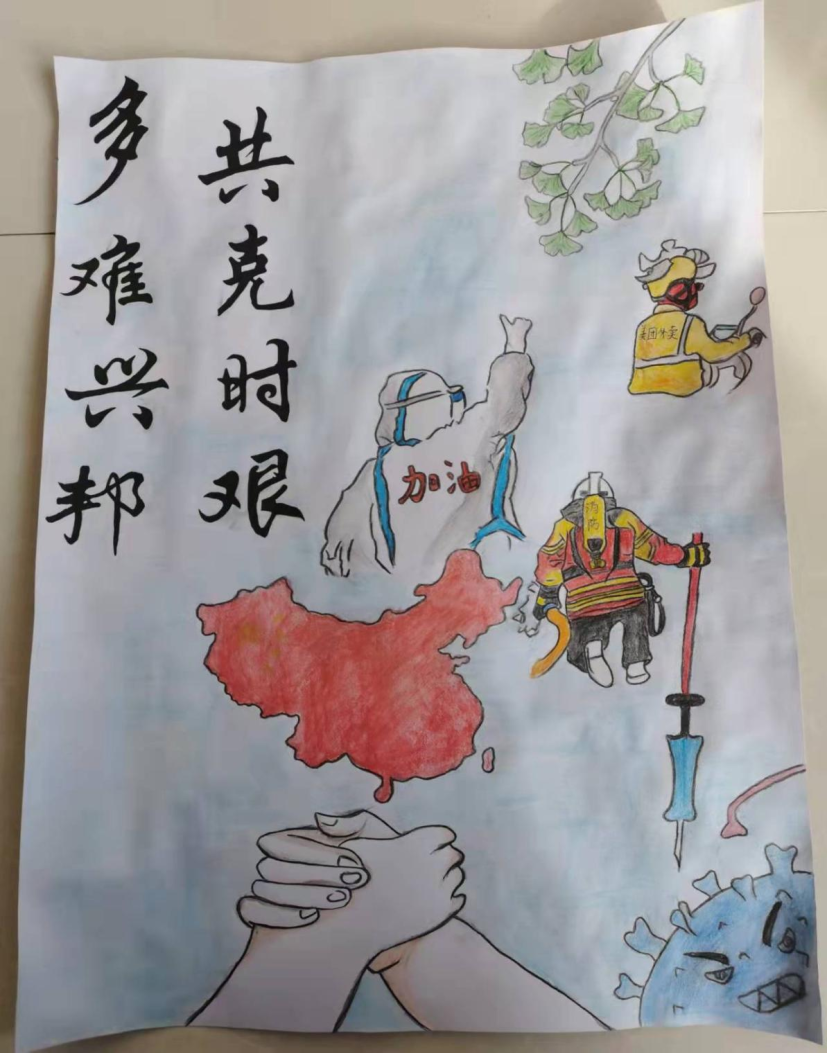 多难兴邦
共克时艰
美团外卖
加油